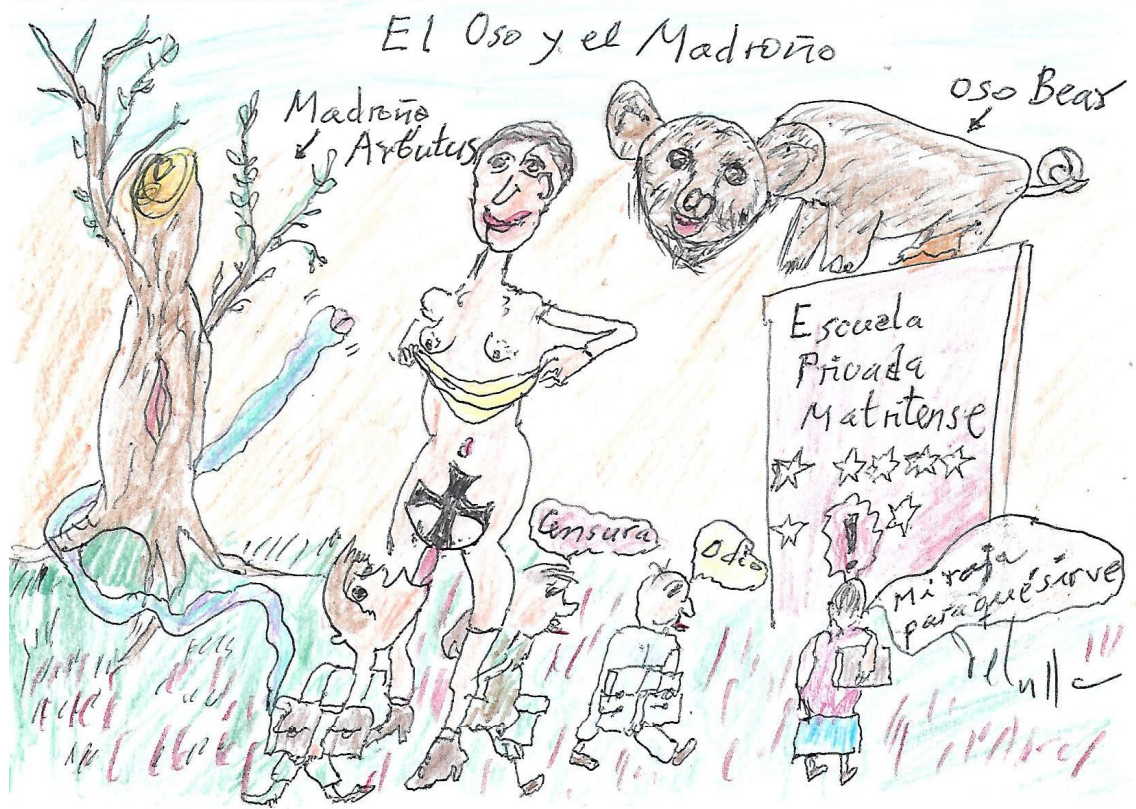 El Oso y el Madroño
Madroño
Arbutus
oso Bear
Escuela
Privada
Matritense
Censura
Odio
!
Mi raja
para qué sirve